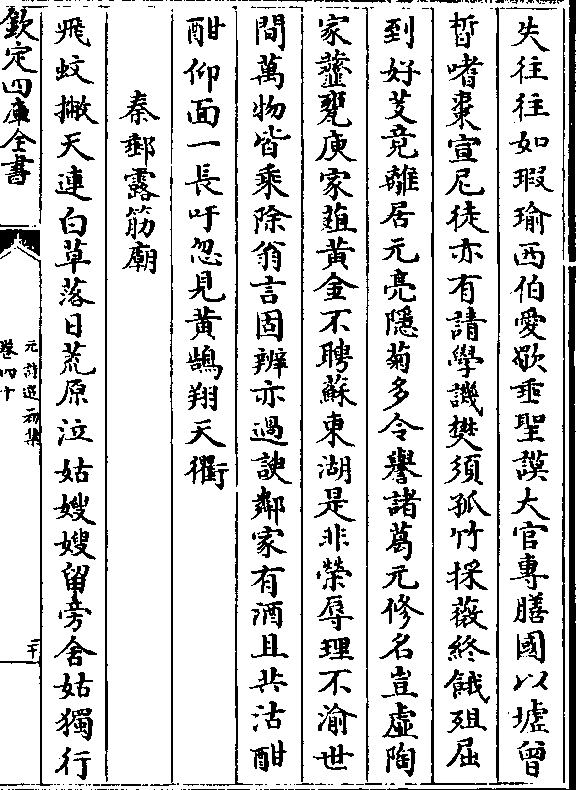 失往往如瑕瑜西伯愛歜垂聖謨大官專膳國以墟曾
晳嗜棗宣尼徒亦有請學譏樊須孤竹採薇終餓殂屈
到好芰竟離居元亮隱菊多令譽諸葛元修名豈虛陶
家虀甕庾家葅黃金不聘蘇東湖是非榮辱理不渝世
間萬物皆乘除翁言固辨亦過諛鄰家有酒且共沽酣
酣仰面一長吁忽見黃鵠翔天衢
秦郵露筋廟
飛蚊撇天連白草落日荒原泣姑嫂嫂留旁舍姑獨行
欽定四庫全書
元詩選初集
卷四十
二十